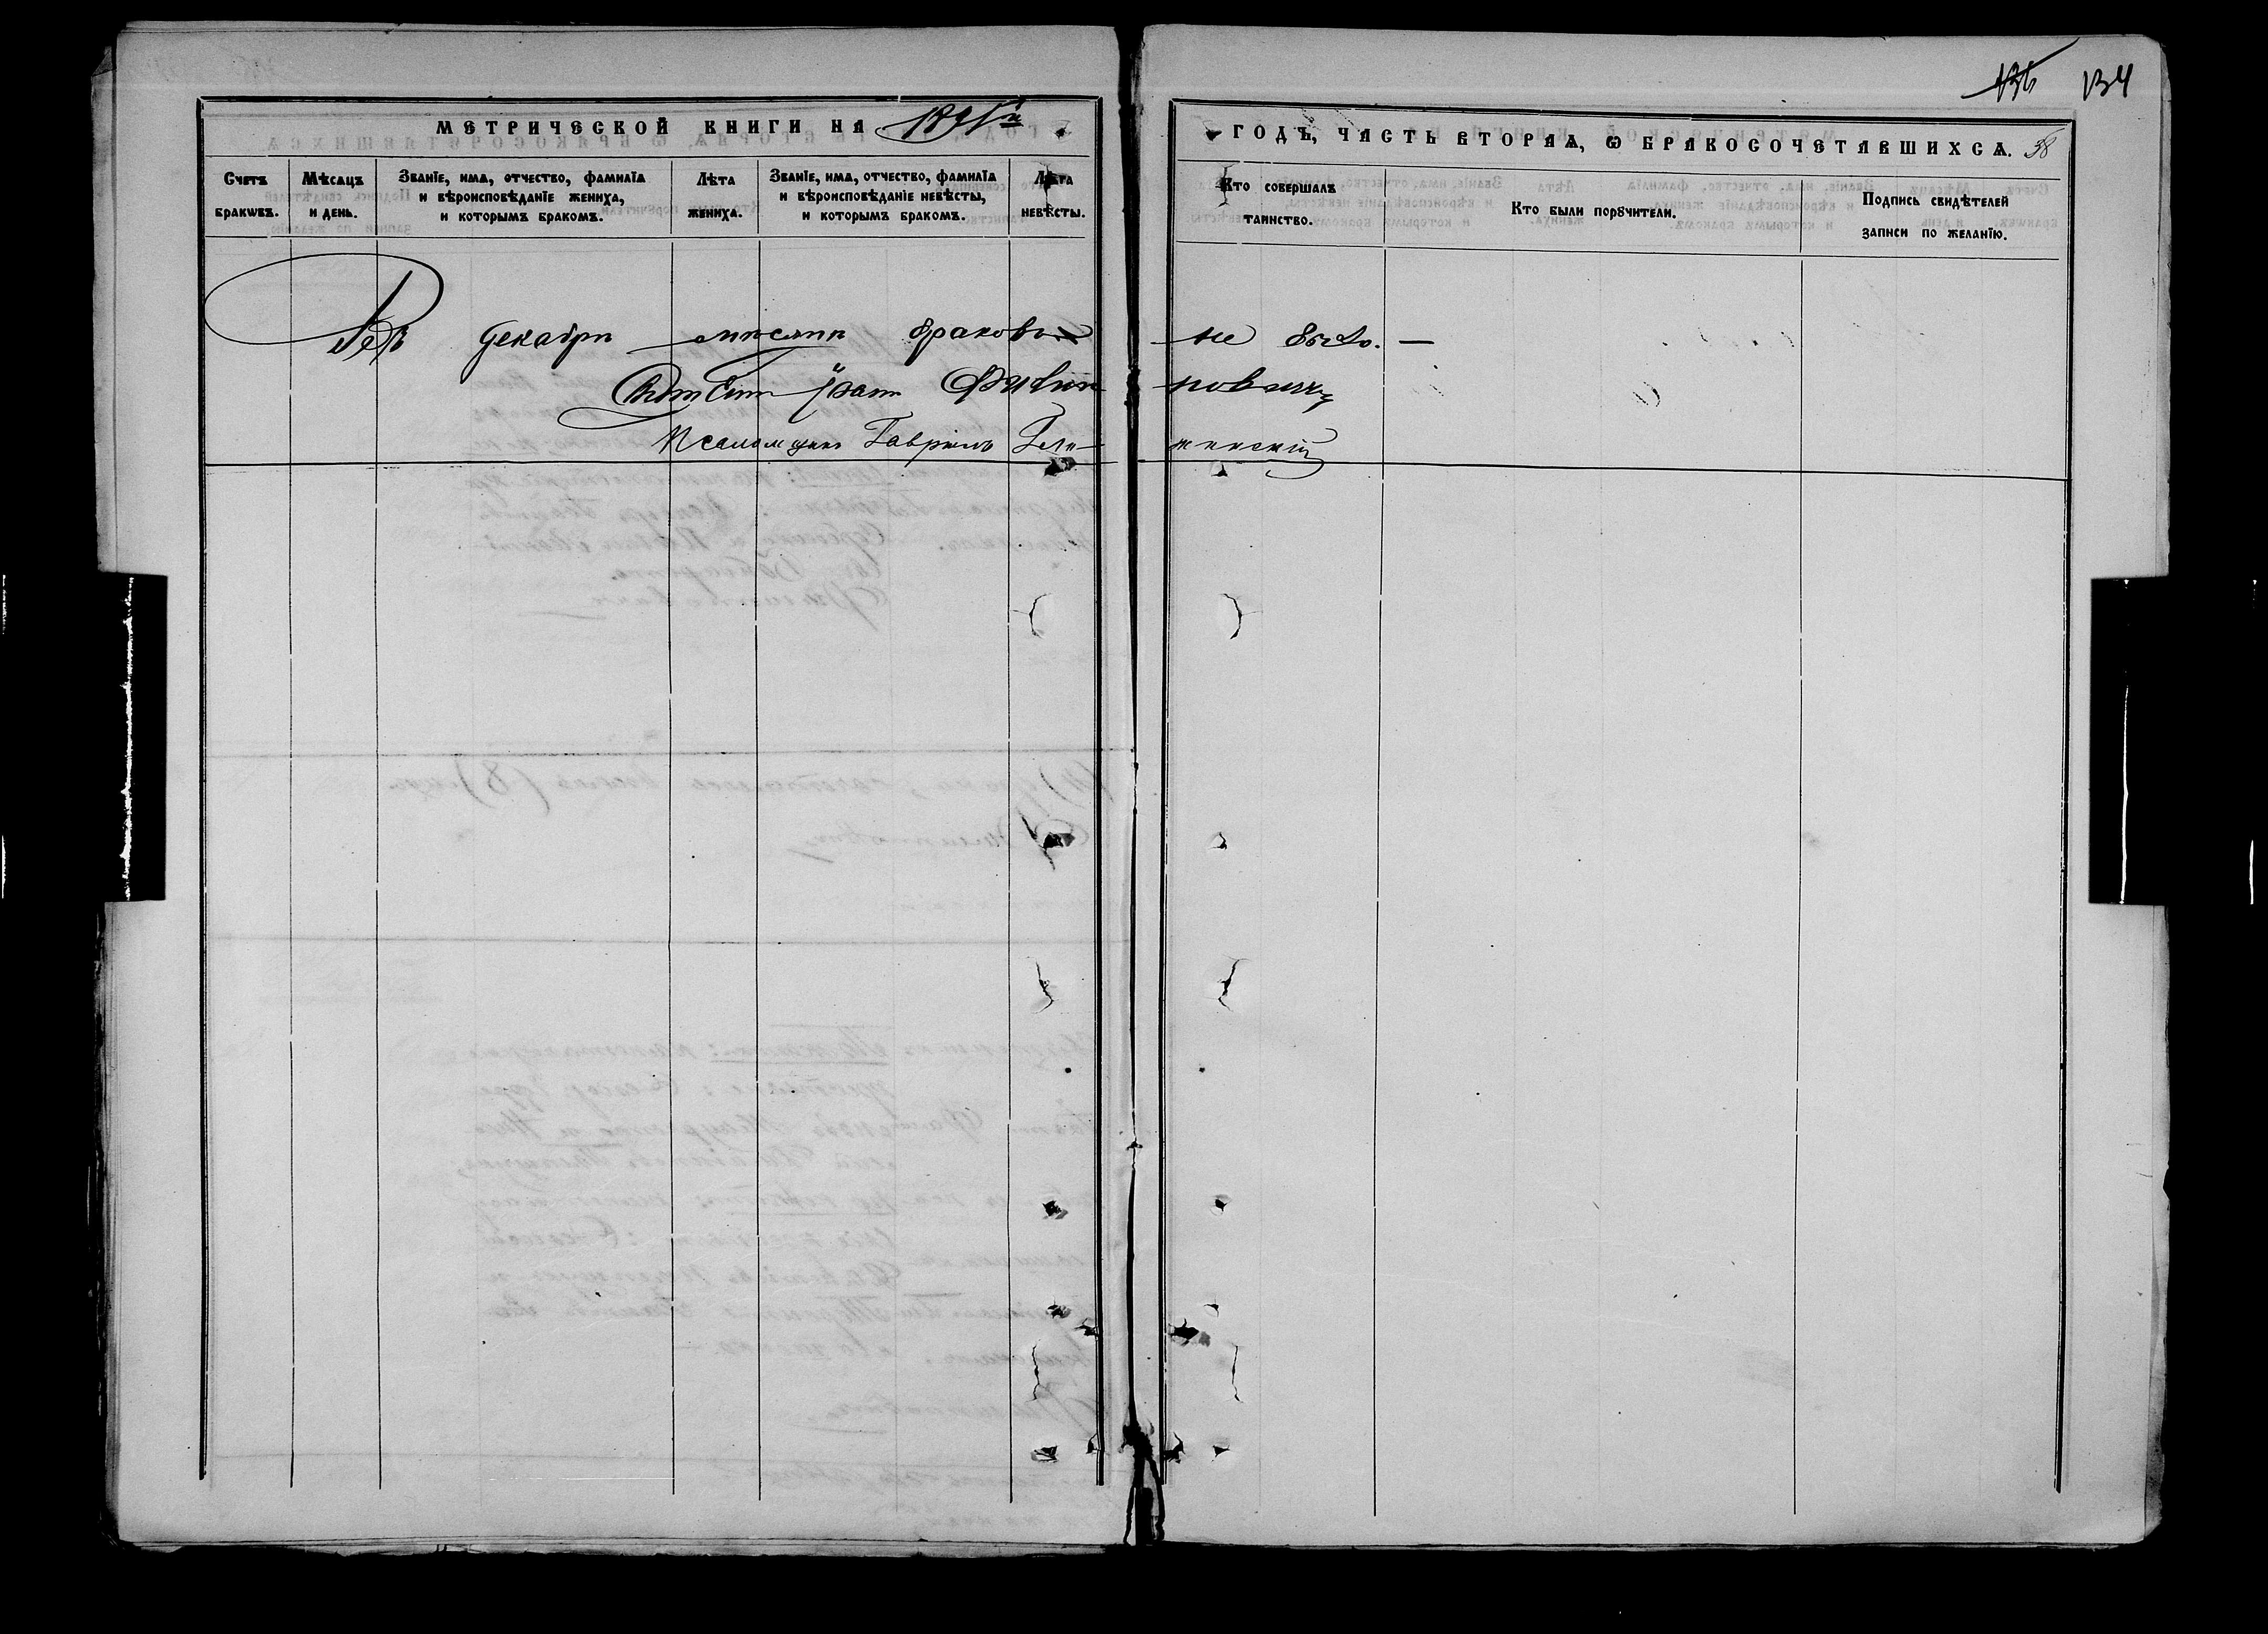 136 134
МЕТРИЧЕСКОЙ КНИГИ НА 1895й
ГОДЪ, ЧАСТЬ ВТОРАѦ, Ѡ БРАКОСОЧЕТАВШИХСѦ. 38
Счетъ бракѡвъ.
Мѣсѧцъ и день.
Званїе, имѧ, отчество, фамилїѧ и вѣроисповѣданїе жениха, и которымъ бракомъ.
Лѣта жениха.
Званїе, имѧ, отчество, фамилїѧ и вѣроисповѣданїе невѣсты, и которымъ бракомъ.
Лѣта невѣсты.
Кто совершалъ таинство.
Кто были порꙋчители.
Подпись свидѣтелей записи по желанїю.
Въ декабрѣ мѣсяцѣ браковъ не было. —
Псаломщикъ Гавріилъ